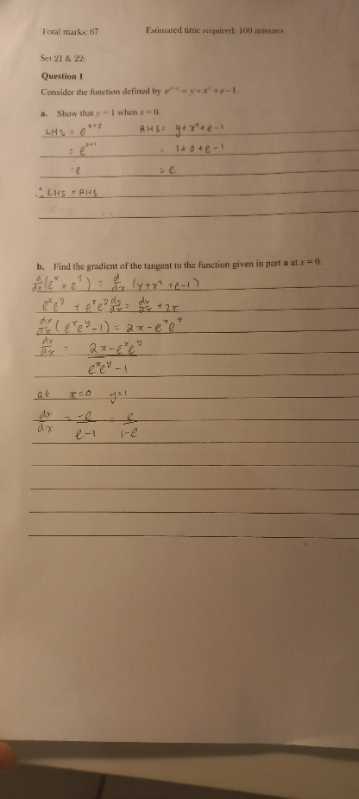 Total marks: 67 Estimated time required: 100 minutes
Set 21 & 22:
Question 1
Consider the function defined by e^(x+y) = y + x² + e - 1.
a. Show that y = 1 when x = 0.
LHS = e^(x+y) RHS = y + x² + e - 1
= e^(0+1) = 1 + 0 + e - 1
= e = e
∴ LHS = RHS
b. Find the gradient of the tangent to the function given in part a at x = 0.
d/dx (e^x × e^y) = d/dx (y + x² + e - 1)
e^x e^y + e^x e^y dy/dx = dy/dx + 2x
dy/dx (e^x e^y - 1) = 2x - e^x e^y
dy/dx = (2x - e^x e^y)/(e^x e^y - 1)
at x = 0 y = 1
dy/dx = -e/(e - 1) = e/(1 - e)